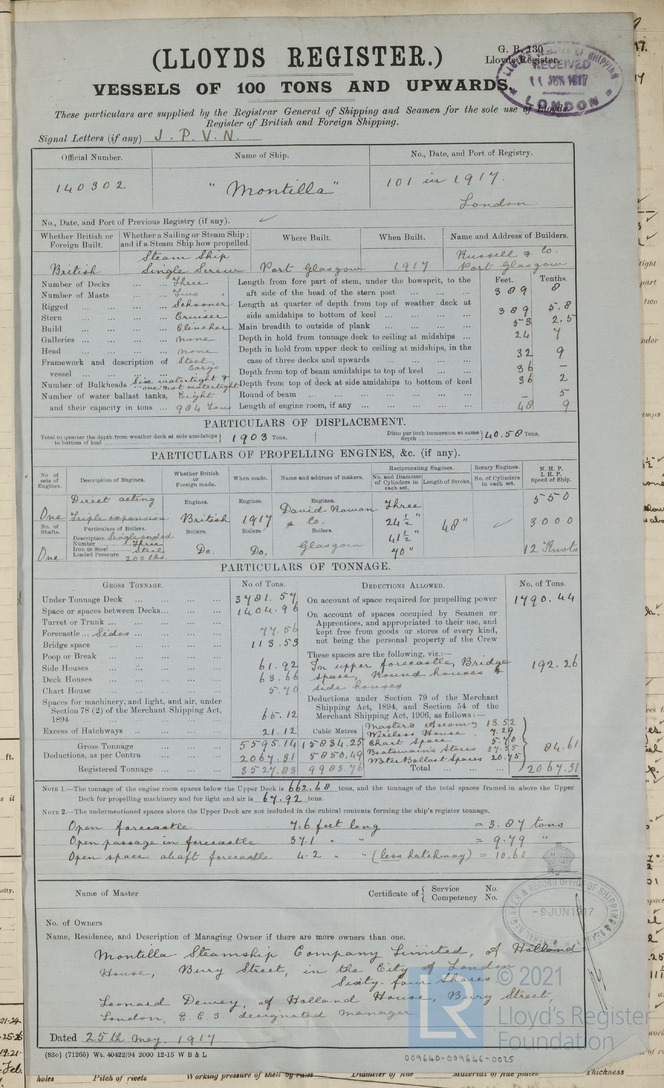 G. R. 130
Lloyds Register.
(LLOYDS REGISTER.)
RECEIVED
11 JUN 1917
LONDON
VESSELS OF 100 TONS AND UPWARDS.
These particulars are supplied by the Registrar General of Shipping and Seamen for the sole use of Lloyds
Register of British and Foreign Shipping.
Signal Letters (if any) J. P. V. N.
Official Number. Name of Ship. No., Date, and Port of Registry.
140302 "Montilla" 101 in 1917.
London
No., Date, and Port of Previous Registry (if any).
Whether British or Foreign Built. Whether a Sailing or Steam Ship; and if a Steam Ship how propelled. Where Built. When Built. Name and Address of Builders.
British Steam Ship Single Screw Port Glasgow 1917 Russell & Co. Port Glasgow
Number of Decks Three
Number of Masts Two
Rigged Schooner
Stern Cruiser
Build Clencher
Galleries none
Head none
Framework and description of vessel Steel, Cargo
Number of Bulkheads Six watertight & one not watertight
Number of water ballast tanks, Eight
and their capacity in tons 984 Tons
Feet. Tenths.
Length from fore part of stem, under the bowsprit, to the aft side of the head of the stern post 389 8
Length at quarter of depth from top of weather deck at side amidships to bottom of keel 389 5.8
Main breadth to outside of plank 53 2.5
Depth in hold from tonnage deck to ceiling at midships 24 7
Depth in hold from upper deck to ceiling at midships, in the case of three decks and upwards 32 9
Depth from top of beam amidships to top of keel 36 –
Depth from top of deck at side amidships to bottom of keel 36 2
Round of beam – 5
Length of engine room, if any 48 9
PARTICULARS OF DISPLACEMENT.
Total to quarter the depth from weather deck at side amidships to bottom of keel 1903 Tons. Ditto per inch immersion at same depth 40.50 Tons.
PARTICULARS OF PROPELLING ENGINES, &c. (if any).
No. of sets of Engines. Description of Engines. Whether British or Foreign made. When made. Name and address of makers. Reciprocating Engines. No. and Diameter of Cylinders in each set. Length of Stroke. Rotary Engines. No. of Cylinders in each set. N. H. P. I. H. P. Speed of Ship.
One Direct acting Triple expansion
Engines. British Engines. 1917 Engines. David Rowan & Co.
Three 24½" 41½" 70" 48" 550 3000 12 Knots
No. of Shafts. One
Particulars of Boilers.
Description Single ended
Number Three
Iron or Steel Steel
Loaded Pressure 200 lbs.
Boilers. Do. Boilers. Do. Boilers. Glasgow
PARTICULARS OF TONNAGE.
GROSS TONNAGE. No of Tons. DEDUCTIONS ALLOWED. No. of Tons.
Under Tonnage Deck 3781.57
Space or spaces between Decks 1404.96
Turret or Trunk
Forecastle Sides 77.56
Bridge space 113.53
Poop or Break
Side Houses 61.92
Deck Houses 63.66
Chart House 5.70
Spaces for machinery, and light, and air, under Section 78 (2) of the Merchant Shipping Act, 1894 65.12
Excess of Hatchways 21.12 Cubic Metres
Gross Tonnage 5595.14 15834.25
Deductions, as per Contra 2067.31 5850.49
Registered Tonnage 3527.83 9983.76
On account of space required for propelling power 1790.44
On account of spaces occupied by Seamen or Apprentices, and appropriated to their use, and kept free from goods or stores of every kind, not being the personal property of the Crew
These spaces are the following, viz.:—
In upper forecastle, Bridge space, Round houses & side houses 192.26
Deductions under Section 79 of the Merchant Shipping Act, 1894, and Section 54 of the Merchant Shipping Act, 1906, as follows:—
Master's Accom. 13.52
Wireless House 7.29
Chart Space 5.70
Boatswain's Stores 37.35
Water Ballast Spaces 20.75
84.61
Total 2067.31
NOTE 1.—The tonnage of the engine room spaces below the Upper Deck is 662.68 tons, and the tonnage of the total spaces framed in above the Upper
Deck for propelling machinery and for light and air is 67.92 tons.
NOTE 2.—The undermentioned spaces above the Upper Deck are not included in the cubical contents forming the ship's register tonnage.
Open forecastle 7.6 feet long = 3.87 tons
Open passage in forecastle 37.1 " " = 9.79 "
Open space abaft forecastle 4.2 " " (less hatchway) = 10.60
Name of Master Certificate of Service No. Competency No.
-9 JUN 1917
No. of Owners
Name, Residence, and Description of Managing Owner if there are more owners than one.
Montilla Steamship Company Limited, of Holland
House, Bury Street, in the City of London
Sixty four shares
Leonard Dewey, of Holland House, Bury Street,
London, E.C.3 designated manager
Dated 25th May, 1917
(82c) (71265) Wt. 40422/94 2000 12-15 W B & L
009640-009646-0025
LR
© 2021
Lloyd's Register
Foundation
holes Pitch of rivets Working pressure of shell by rules Diameter of flue Material of flue plates Thickness